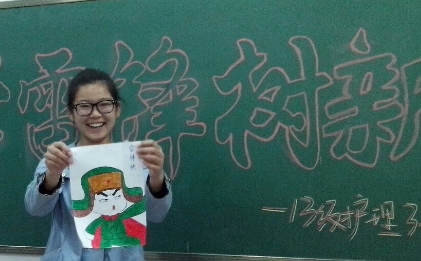 雷锋树新
一13级护理3